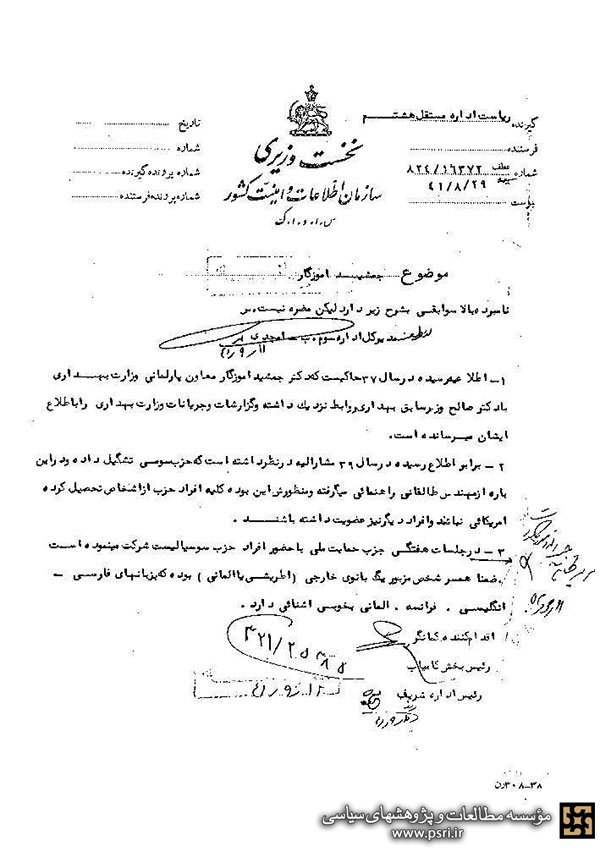 گیرنده ریاست اداره مستقل هشتم
فرستنده
شماره ۸۲۴/۱۶۳۷۲
۴۱/۸/۲۹
پیوست
نخست وزیری
سازمان اطلاعات و امنیت کشور
س.ا.و.ا.ک
تاریخ
شماره
شماره پرونده گیرنده
شماره پرونده فرستنده
موضوع جمشید آموزگار
نامبرده بالا سوابقی بشرح زیر دارد لیکن مضره نیست. س
مدیرکل اداره سوم
۱- اطلاعیه رسیده در سال ۳۷ حاکیست که دکتر جمشید آموزگار معاون پارلمانی وزارت بهداری
با دکتر صالح وزیر سابق بهداری روابط نزدیک داشته و گزارشات و جریانات وزارت بهداری را باطلاع
ایشان میرسانده است.
۲- برابر اطلاع رسیده در سال ۳۹ مشارالیه در نظر داشته است که حزب سومی تشگیل داده و در این
باره از مهندس طالقانی راهنمائی میگرفته و منظورش این بوده کلیه افراد حزب از اشخاص تحصیل کرده
امریکائی نباشند و افراد دیگر نیز عضویت داشته باشند.
۳- در جلسات هفتگی حزب حمایت ملی با حضور افراد حزب سوسیالیست شرکت مینموده است
ضمنا همسر شخص مزبور یک بانوی خارجی (اطریشی یا المانی) بوده که بزبانهای فارسی -
انگلیسی . فرانسه . المانی بخوبی اشنائی دارد.
اقدام کننده کمانگر
رئیس بخش کامیاب
رئیس اداره شریف
۳۲۱/۲۰۳۸۵
۳۸-۳۰۸ن
مؤسسه مطالعات و پژوهشهای سیاسی
www.psri.ir